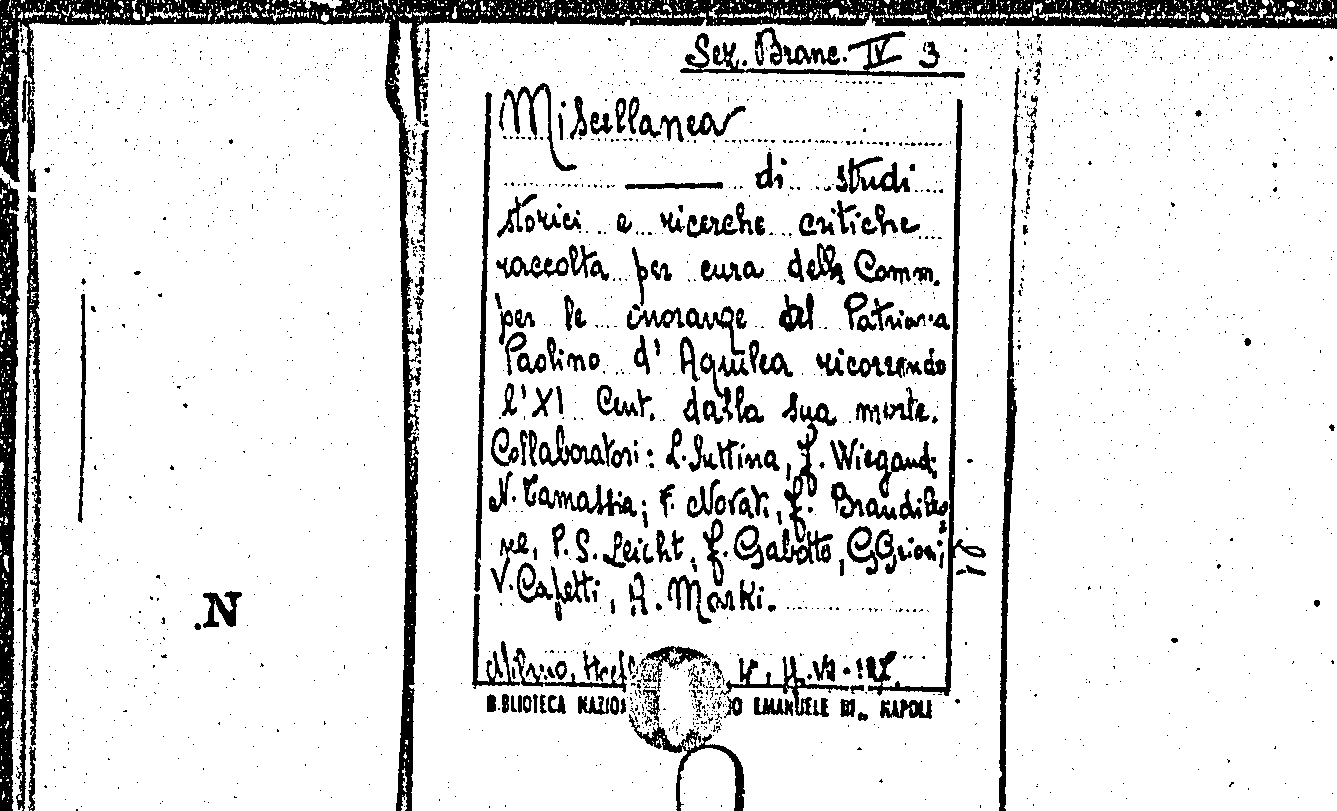 Sez. Branc. IV 3
Miscellanea
di studi
storici e ricerche critiche
raccolta per cura della Comm.
per le onoranze del Patriarca
Paolino d' Aquilea ricorrendo
l'XI Cent. dalla sua morte.
Collaboratori: L. Suttina, F. Wiegand;
N. Tamassia; F. Novati, F. Brandileo
ne, P. S. Leicht, F. Gabotto, G Grioni,
V. Capetti,
Milano,
BIBLIOTECA EMANUELE III„ NAPOLI
.N